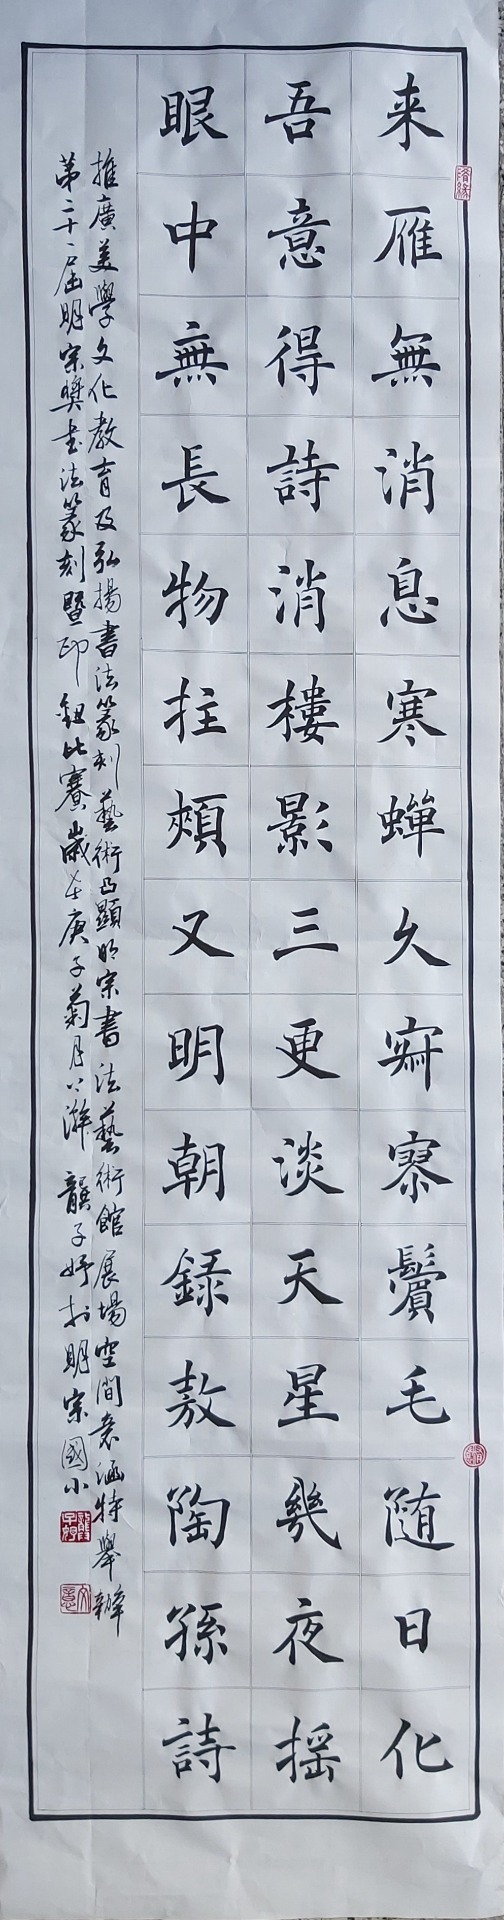 来雁無消息寒蟬久寂寥鬢毛随日化
吾意得詩消樓影三更淡天星幾夜摇
眼中無長物拄頰又明朝録敖陶孫詩
推廣美學文化教育及弘揚書法篆刻藝術凸顯明宗書法藝術館展場空間意涵特舉辦
第二十一屆明宗獎書法篆刻暨印鈕比賽歲在庚子菊月上澣龔子妤於明宗國小